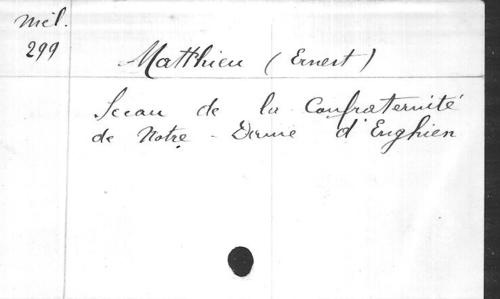 Mél.
299
Matthieu (Ernest)
Sceau de la Confraternité
de Notre-Dame d'Enghien